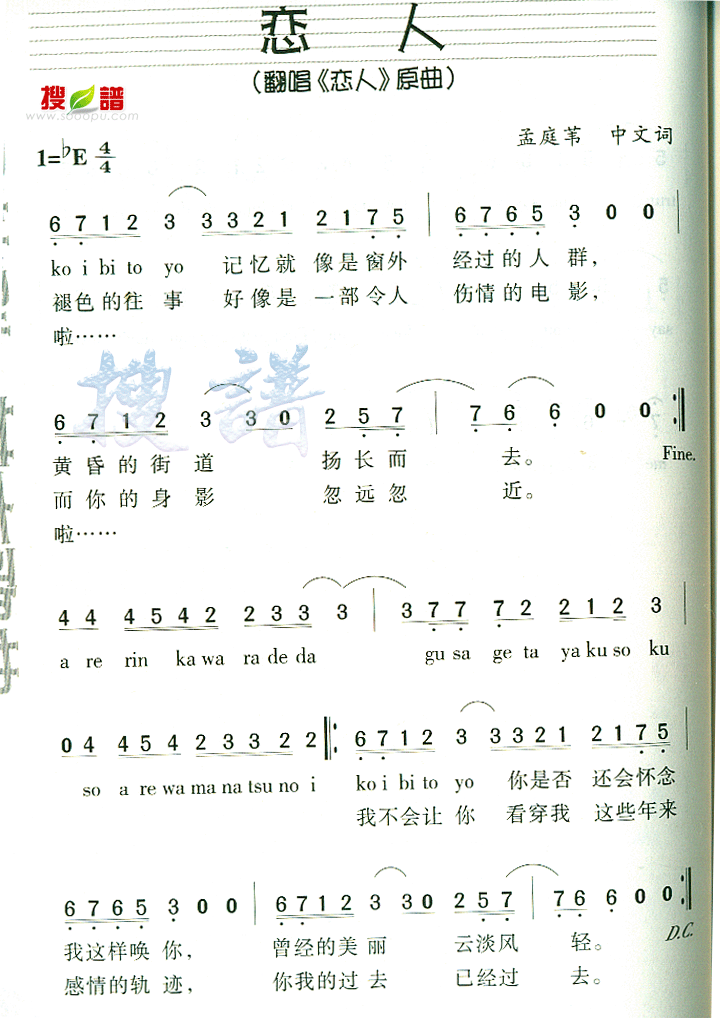 恋 人
(翻唱《恋人》原曲)
搜谱
www.sooopu.com
孟庭苇 中文词
1=♭E 4/4
6 7 1 2 3 3 3 2 1 2 1 7 5 | 6 7 6 5 3 0 0 |
ko i bi to yo 记忆就 像是窗外 经过的人 群,
褪色的往 事 好像是 一部令人 伤情的电 影,
啦……
搜谱
6 7 1 2 3 3 0 2 5 7 | 7 6 6 0 0 :||
黄昏的街 道 扬长而 去。 Fine.
而你的身 影 忽远忽 近。
啦……
4 4 4 5 4 2 2 3 3 3 | 3 7 7 7 2 2 1 2 3 |
a re rin ka wa ra de da gu sa ge ta ya ku so ku
0 4 4 5 4 2 2 3 3 2 2 2 ||: 6 7 1 2 3 3 3 2 1 2 1 7 5
so a re wa ma na tsu no i ko i bi to yo 你是否 还会怀念
我不会让 你 看穿我 这些年来
6 7 6 5 3 0 0 | 6 7 1 2 3 3 0 2 5 7 | 7 6 6 0 0 :||
我这样唤 你, 曾经的美 丽 云淡风 轻。 D.C.
感情的轨 迹, 你我的过 去 已经过 去。